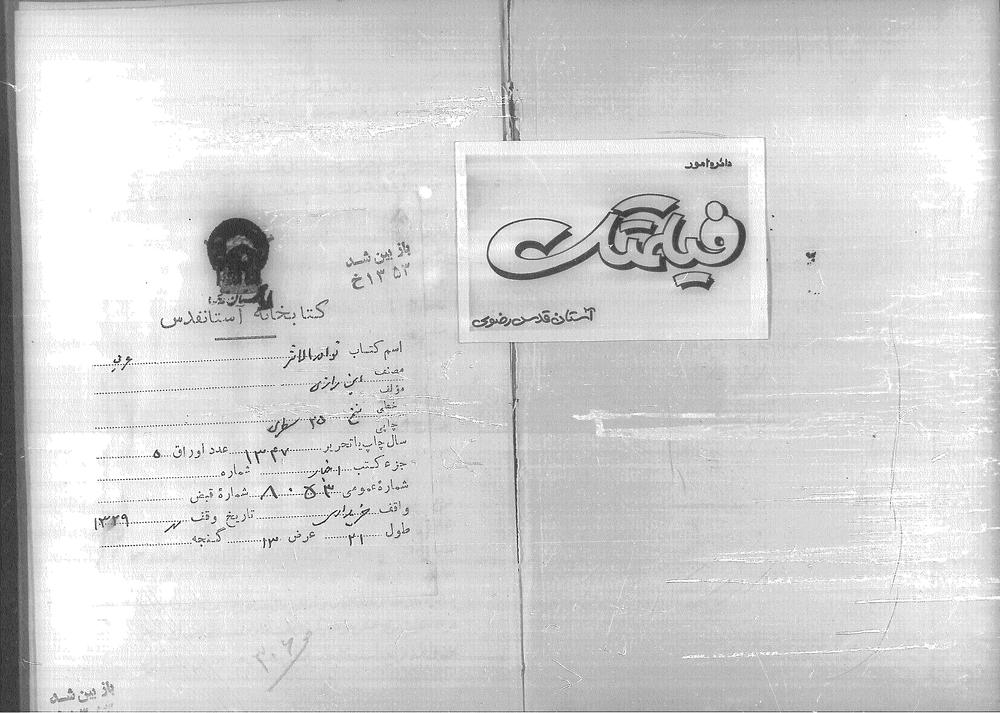 دائره امور
فیلمتک
آستان قدس رضوی
باز بین شد
۱۳۵۳ خ
کتابخانه آستانقدس
اسم کتاب نوادر الاثر عربی
مصنف
مؤلف ابن رازی
خطی
چاپی نسخ ۲۵ سطری
سال چاپ یا تحریر ۱۳۴۷ عدد اوراق ۵
جزء کتب اخبار شماره
شماره عمومی ۸۰۵۳ شماره قبض
واقف خریداری تاریخ وقف مهر ۱۳۲۹
طول ۲۱ عرض ۱۳ گنجه
۳۰۶
باز بین شد